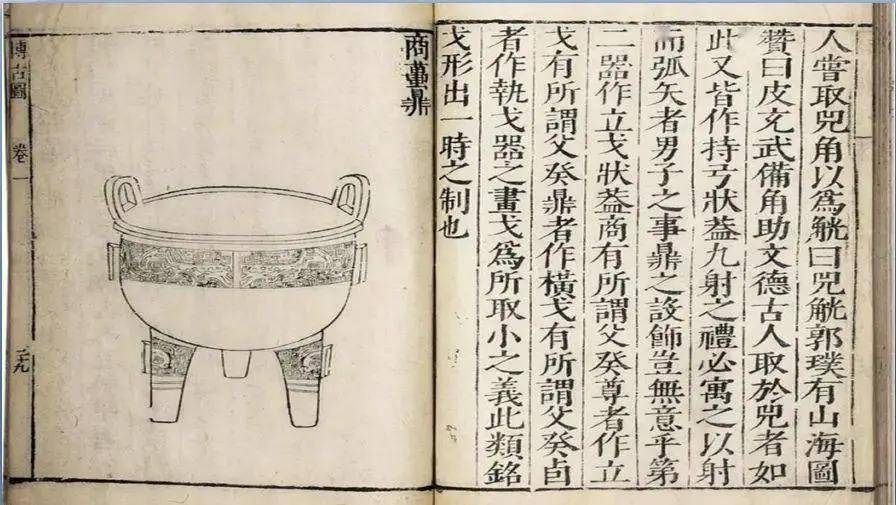 人嘗取兕角以爲觥曰兕觥郭璞有山海圖
贊曰皮充武備角助文德古人取於兕者如
此又皆作持弓狀葢九射之禮必寓之以射
而弧矢者男子之事鼎之設飾豈無意乎第
二器作立戈狀葢商有所謂父癸尊者作立
戈有所謂父癸鼎者作橫戈有所謂父癸卣
者作執戈器之畫戈爲所取小之義此類銘
戈形出一時之制也
商鼎
博古圖
卷一
二十九